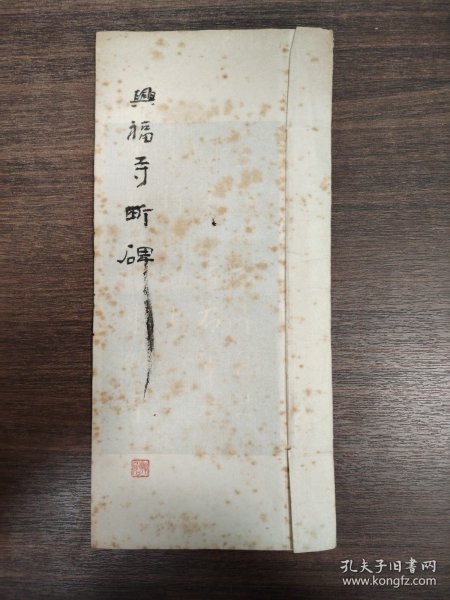 興福寺断碑
孔夫子旧书网
www.kongfz.com